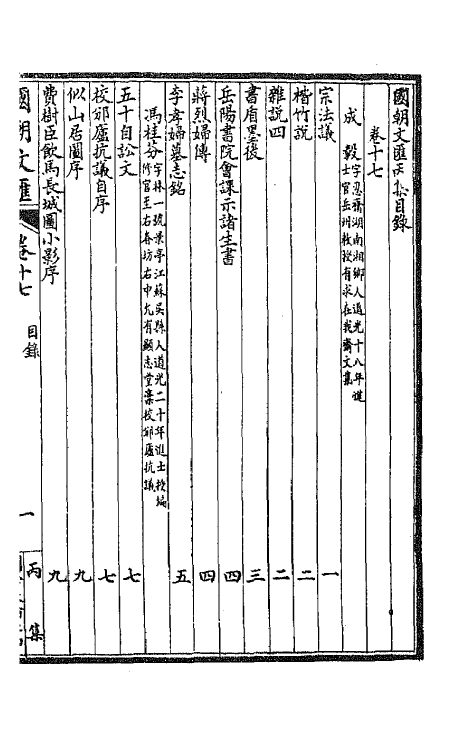 國朝文匯丙集目錄
卷十七
成毅 字忍齋湖南湘鄉人道光十八年進士官岳州教授有求在我齋文集
宗法議 一
楷竹說 二
雜說四 二
書盾墨後 三
岳陽書院會課示諸生書 四
蔣烈婦傳 四
李孝婦墓志銘 五
馮桂芬 字林一號景亭江蘇吳縣人道光二十年進士授編修官至右春坊右中允有顯志堂稾校邠廬抗議
五十自訟文 七
校邠廬抗議自序 七
似山居圖序 九
費樹臣飲馬長城圖小影序 九
國朝文匯 卷十七 目錄 一 丙集